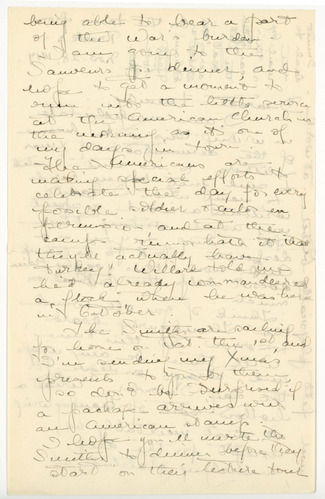 being able to bear a part
of the war's burden.
I am going to the
for dinner, and
hope to get a moment to
run into the little service
at the American Church in
the morning as it one of
my days in town.
The Americans are
making special efforts to
celebrate the day for every
possible soldier & sailor en
permission, and at the
camps it that
they'll actually have
turkey! Willard told me
he'd already commandeered
a flock when he was here
in October.
The Smiths are sailing
for home on the 1st, and
I'm sending my Xmas
presents to you by them,
so don't be surprised if
a package arrives with
an American stamp.
I hope you'll invite the
Smiths to dinner before they
start on their lecture tour